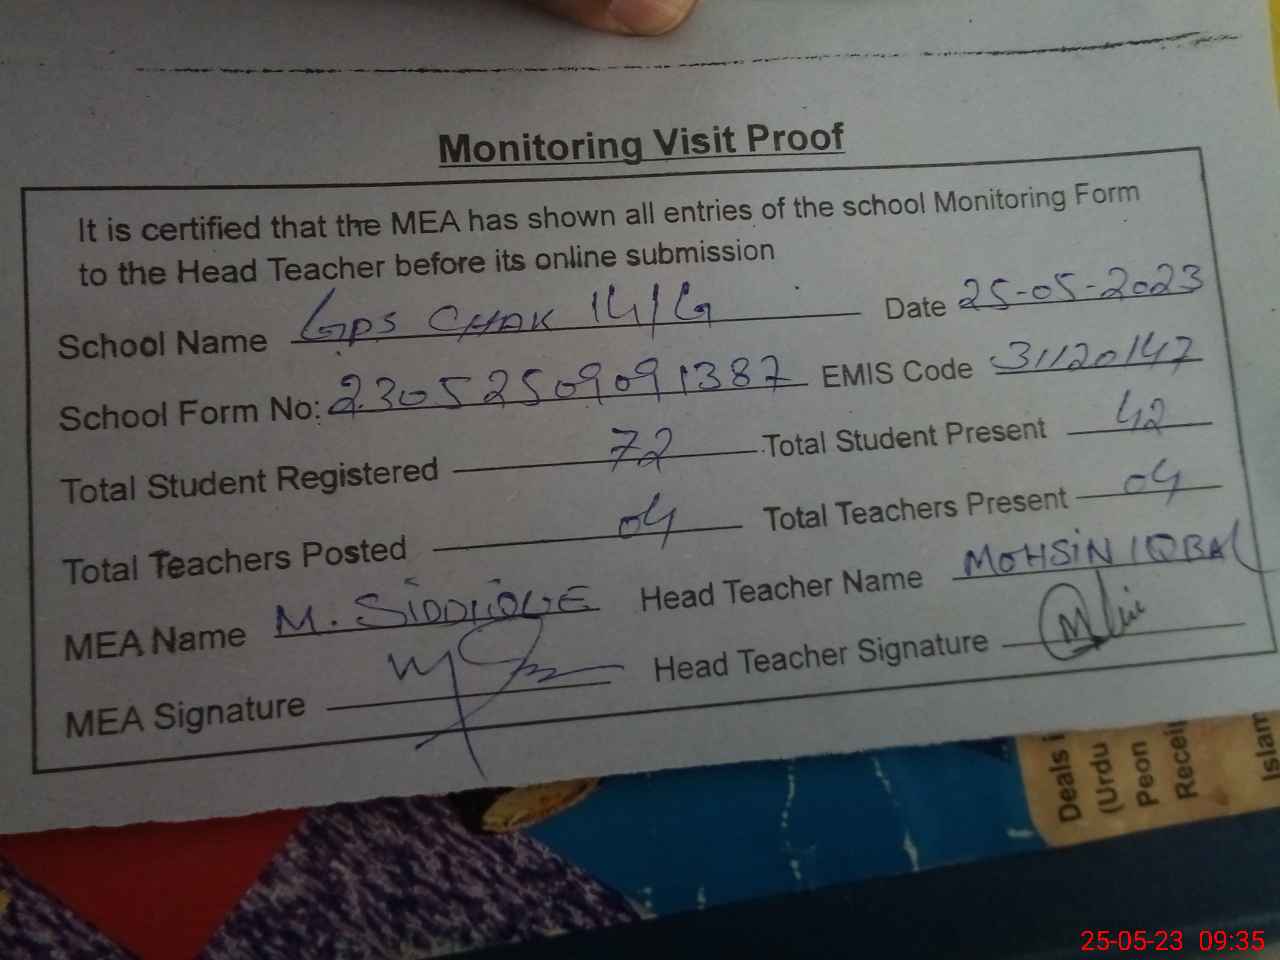 Monitoring Visit Proof
It is certified that the MEA has shown all entries of the school Monitoring Form
to the Head Teacher before its online submission
School Name GPS CHAK 14/G Date 25-05-2023
School Form No: 23052509091387 EMIS Code 31120147
Total Student Registered 72 Total Student Present 42
Total Teachers Posted 04 Total Teachers Present 04
MEA Name M. SIDDIQUE Head Teacher Name MOHSIN IQBAL
MEA Signature Head Teacher Signature
Deals i
(Urdu
Peon
Recei
Islam
25-05-23 09:35